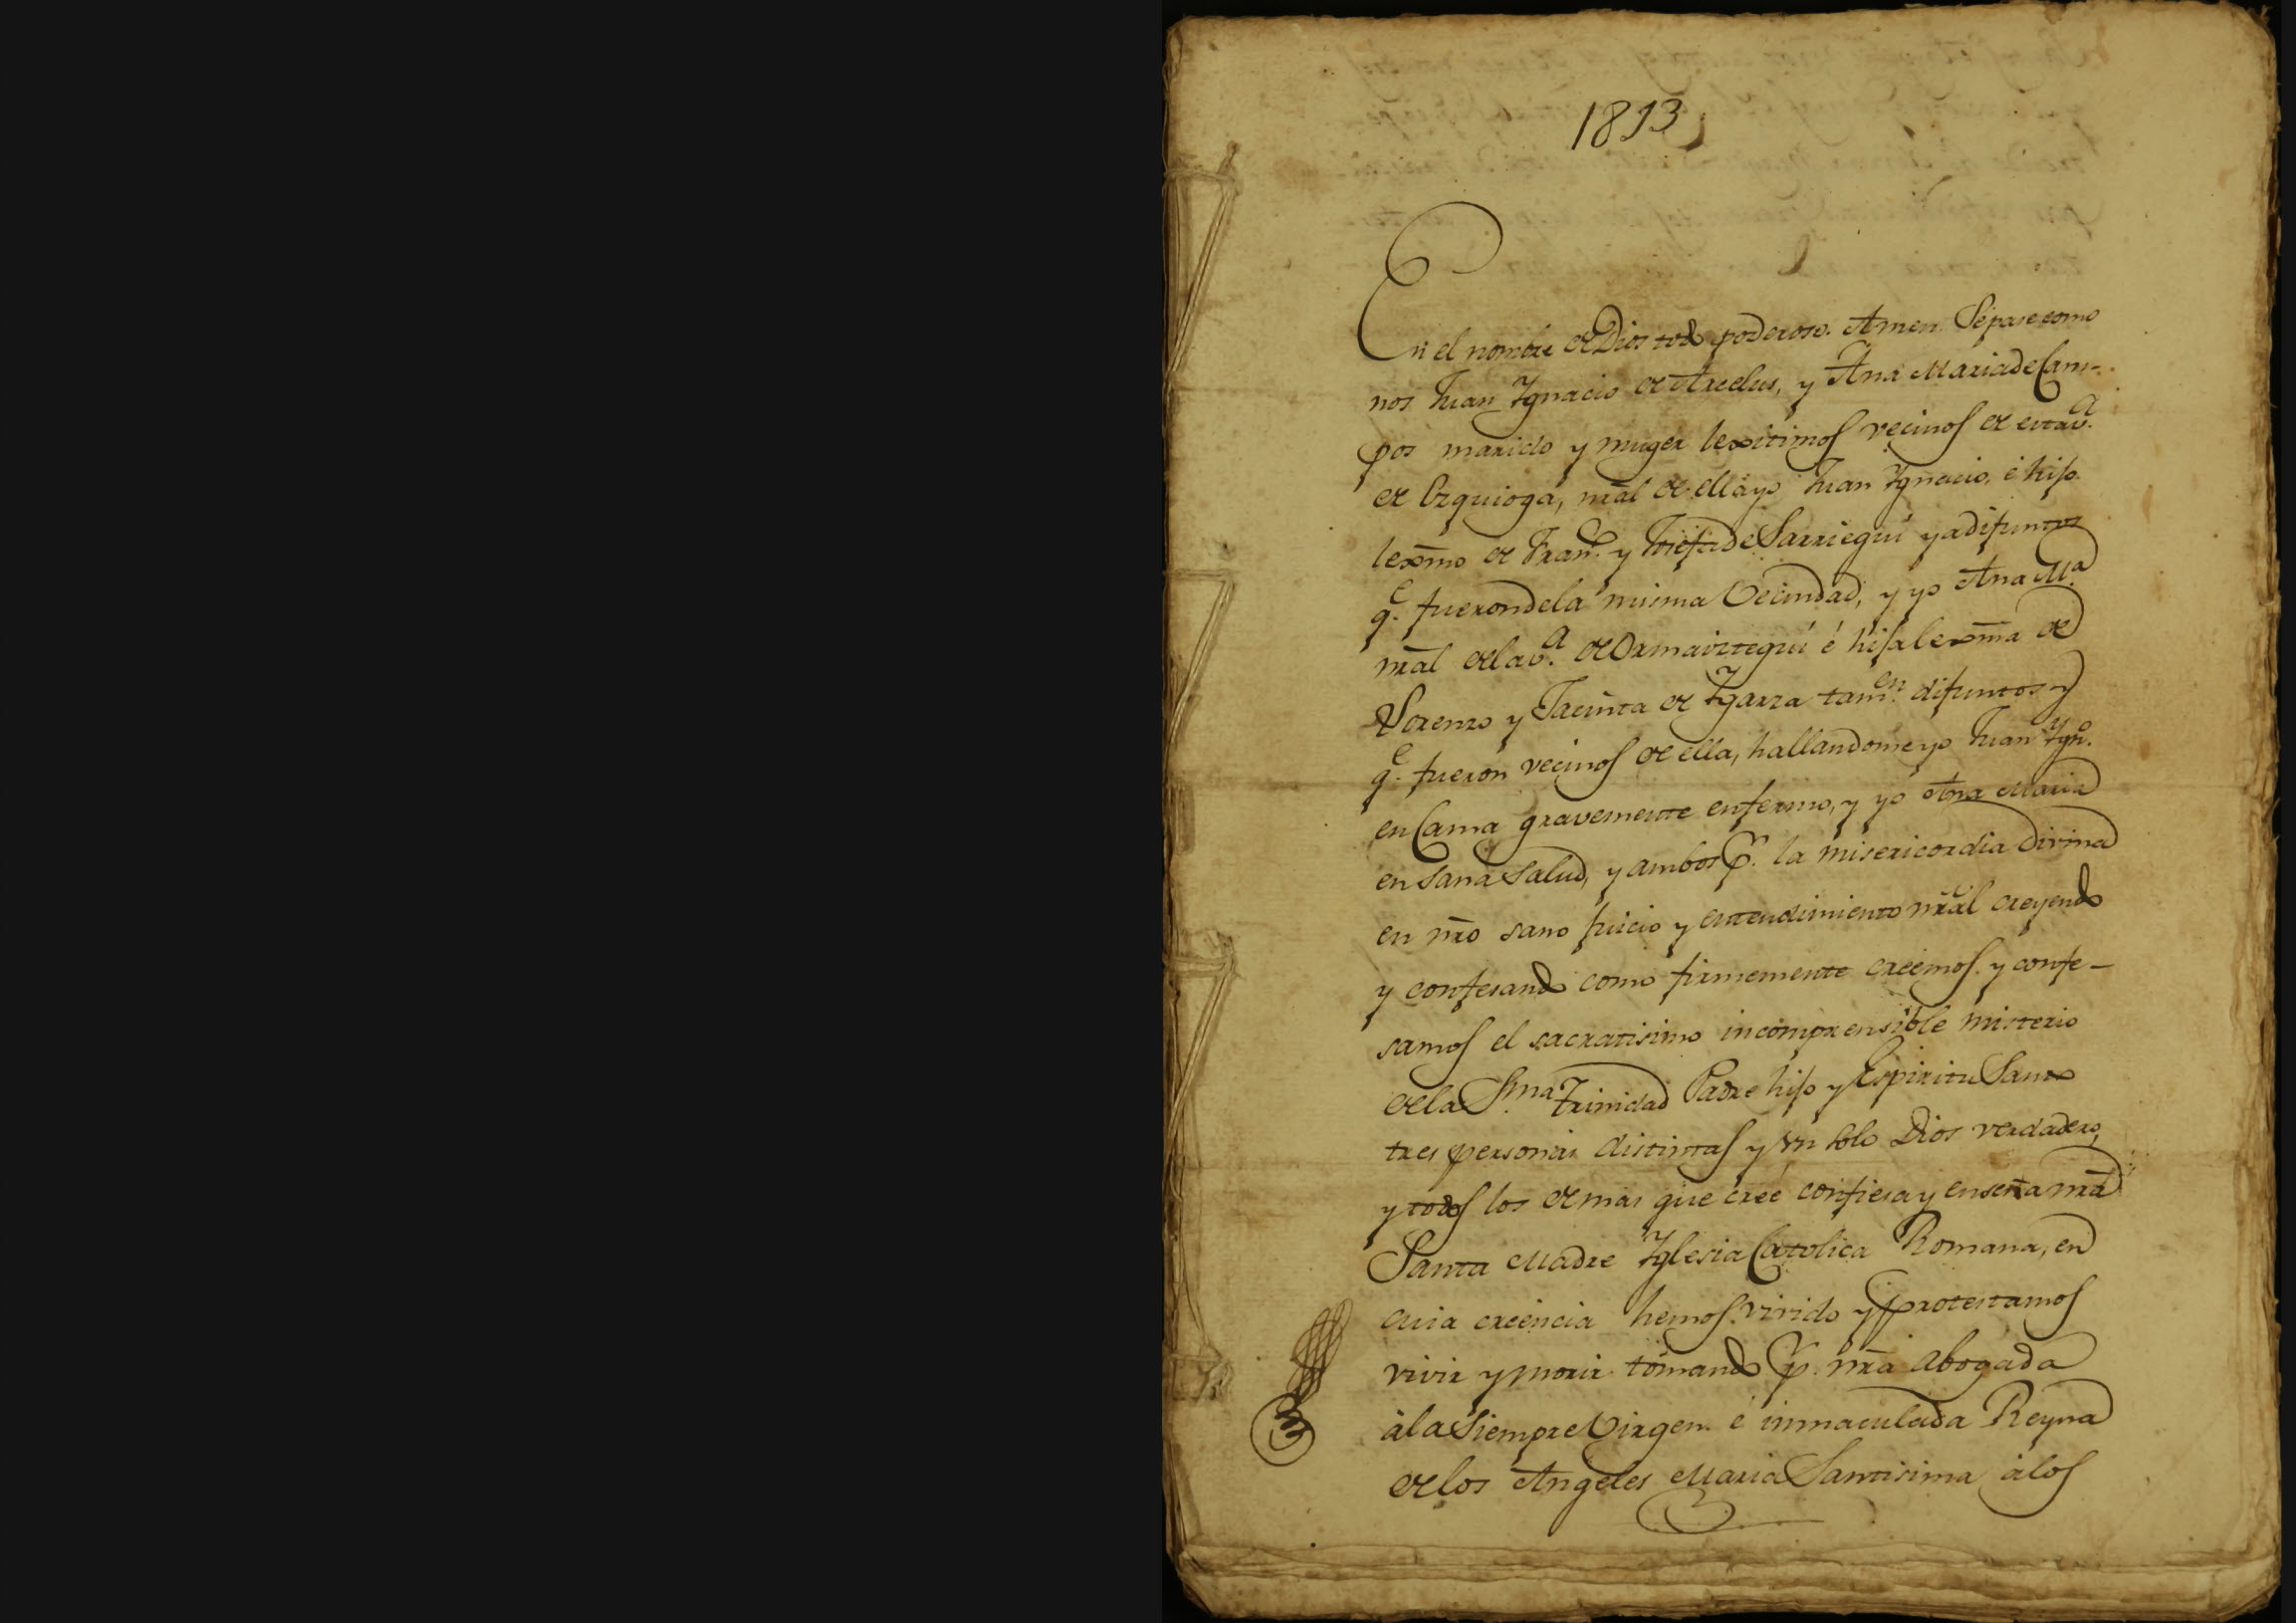 1813
En el nombre de Dios todo poderoso. Amen. Sepase como
nos Juan Ygnacio de Arcelus, y Ana Maria de Cam-
pos marido y muger lexitimos vecinos de esta v.ª
de Ezquioga, nr̃al de ella yo Juan Ygnacio, é hijo
lexm̃o de Fran.co y Josefa de Sarriegui ya difuntos
q.e fueron de la misma Vecindad, y yo Ana M.a
nr̃al de la v.a de Ormaiztegui é hija lexm̃a de
Lorenzo y Jacinta de Ygarza tam.en difuntos y
q.e fueron vecinos de ella, hallandome yo Juan Ygn.o
en Cama gravemente enfermo, y yo Ana Maria
en sana salud, y ambos p.r la misericordia Divina
en nr̃o sano juicio y entendimiento nr̃al creyendo
y confesando como firmemente creemos y confe-
samos el sacratisimo incomprensible misterio
de la S.ma Trinidad Padre hijo y Espiritu Santo
tres personas distintas y un solo Dios verdadero,
y todos los demas que creé confiesa y enseña nr̃a
Santa Madre Yglesia Catolica Romana, en
cuia creencia hemos vivido y protestamos
vivir y morir tomando p.r nr̃a abogada
à la Siempre Virgen é inmaculada Reyna
de los Angeles Maria Santisima à los